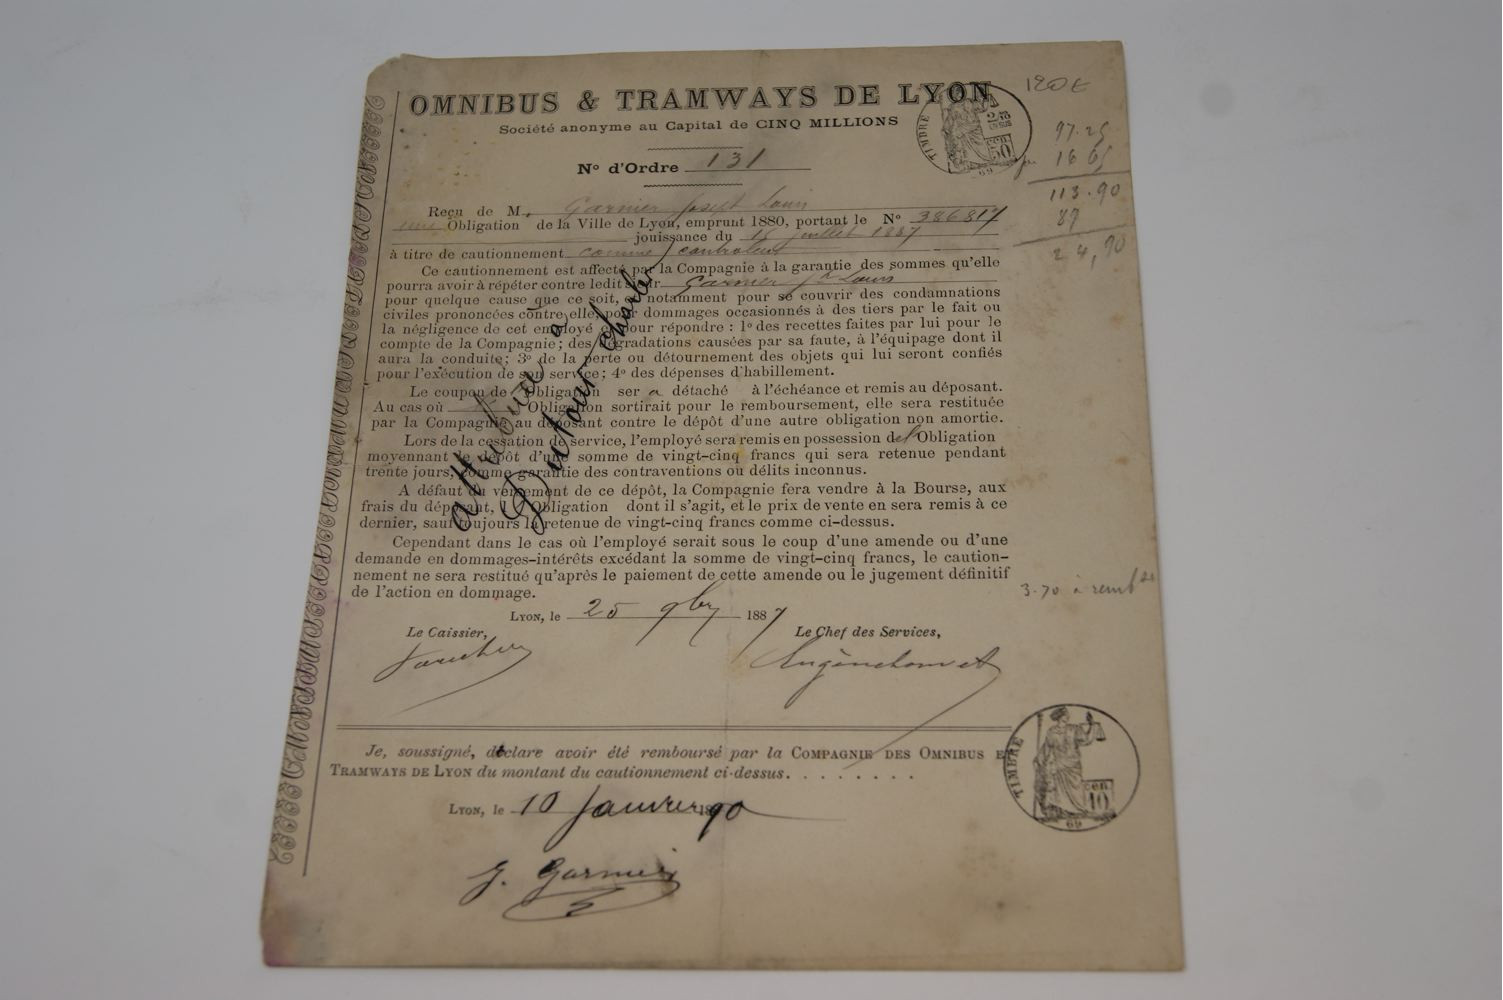 OMNIBUS & TRAMWAYS DE LYON
Société anonyme au Capital de CINQ MILLIONS
120 €
TIMBRE
50
69
97.25
16 65
113.90
89
24,90
Nº d'Ordre 131
Reçu de M. Garnier Joseph Louis
une Obligation de la Ville de Lyon, emprunt 1880, portant le Nº 386817
jouissance du 15 juillet 1887
à titre de cautionnement comme controleur
Ce cautionnement est affecté par la Compagnie à la garantie des sommes qu'elle
pourra avoir à répéter contre ledit sieur Garnier Jh Louis
pour quelque cause que ce soit, et notamment pour se couvrir des condamnations
civiles prononcées contre elle, pour dommages occasionnés à des tiers par le fait ou
la négligence de cet employé et pour répondre : 1º des recettes faites par lui pour le
compte de la Compagnie; des dégradations causées par sa faute, à l'équipage dont il
aura la conduite; 3º de la perte ou détournement des objets qui lui seront confiés
pour l'exécution de son service; 4º des dépenses d'habillement.
Le coupon de l'Obligation sera détaché à l'échéance et remis au déposant.
Au cas où l' Obligation sortirait pour le remboursement, elle sera restituée
par la Compagnie au déposant contre le dépôt d'une autre obligation non amortie.
Lors de la cessation de service, l'employé sera remis en possession de l'Obligation
moyennant le dépôt d'une somme de vingt-cinq francs qui sera retenue pendant
trente jours, comme garantie des contraventions ou délits inconnus.
A défaut du versement de ce dépôt, la Compagnie fera vendre à la Bourse, aux
frais du déposant, l'Obligation dont il s'agit, et le prix de vente en sera remis à ce
dernier, sauf toujours la retenue de vingt-cinq francs comme ci-dessus.
Cependant dans le cas où l'employé serait sous le coup d'une amende ou d'une
demande en dommages-intérêts excédant la somme de vingt-cinq francs, le caution-
nement ne sera restitué qu'après le paiement de cette amende ou le jugement définitif
de l'action en dommage.
attribuée a
Dutour Charles
3.70 à rembser
Lyon, le 25 9bre 1887
Le Caissier,
Le Chef des Services,
Je, soussigné, déclare avoir été remboursé par la COMPAGNIE DES OMNIBUS ET
TRAMWAYS DE LYON du montant du cautionnement ci-dessus. . . . . . . . .
TIMBRE
cen
10
69
Lyon, le 10 Janvier 1890
J. Garnier